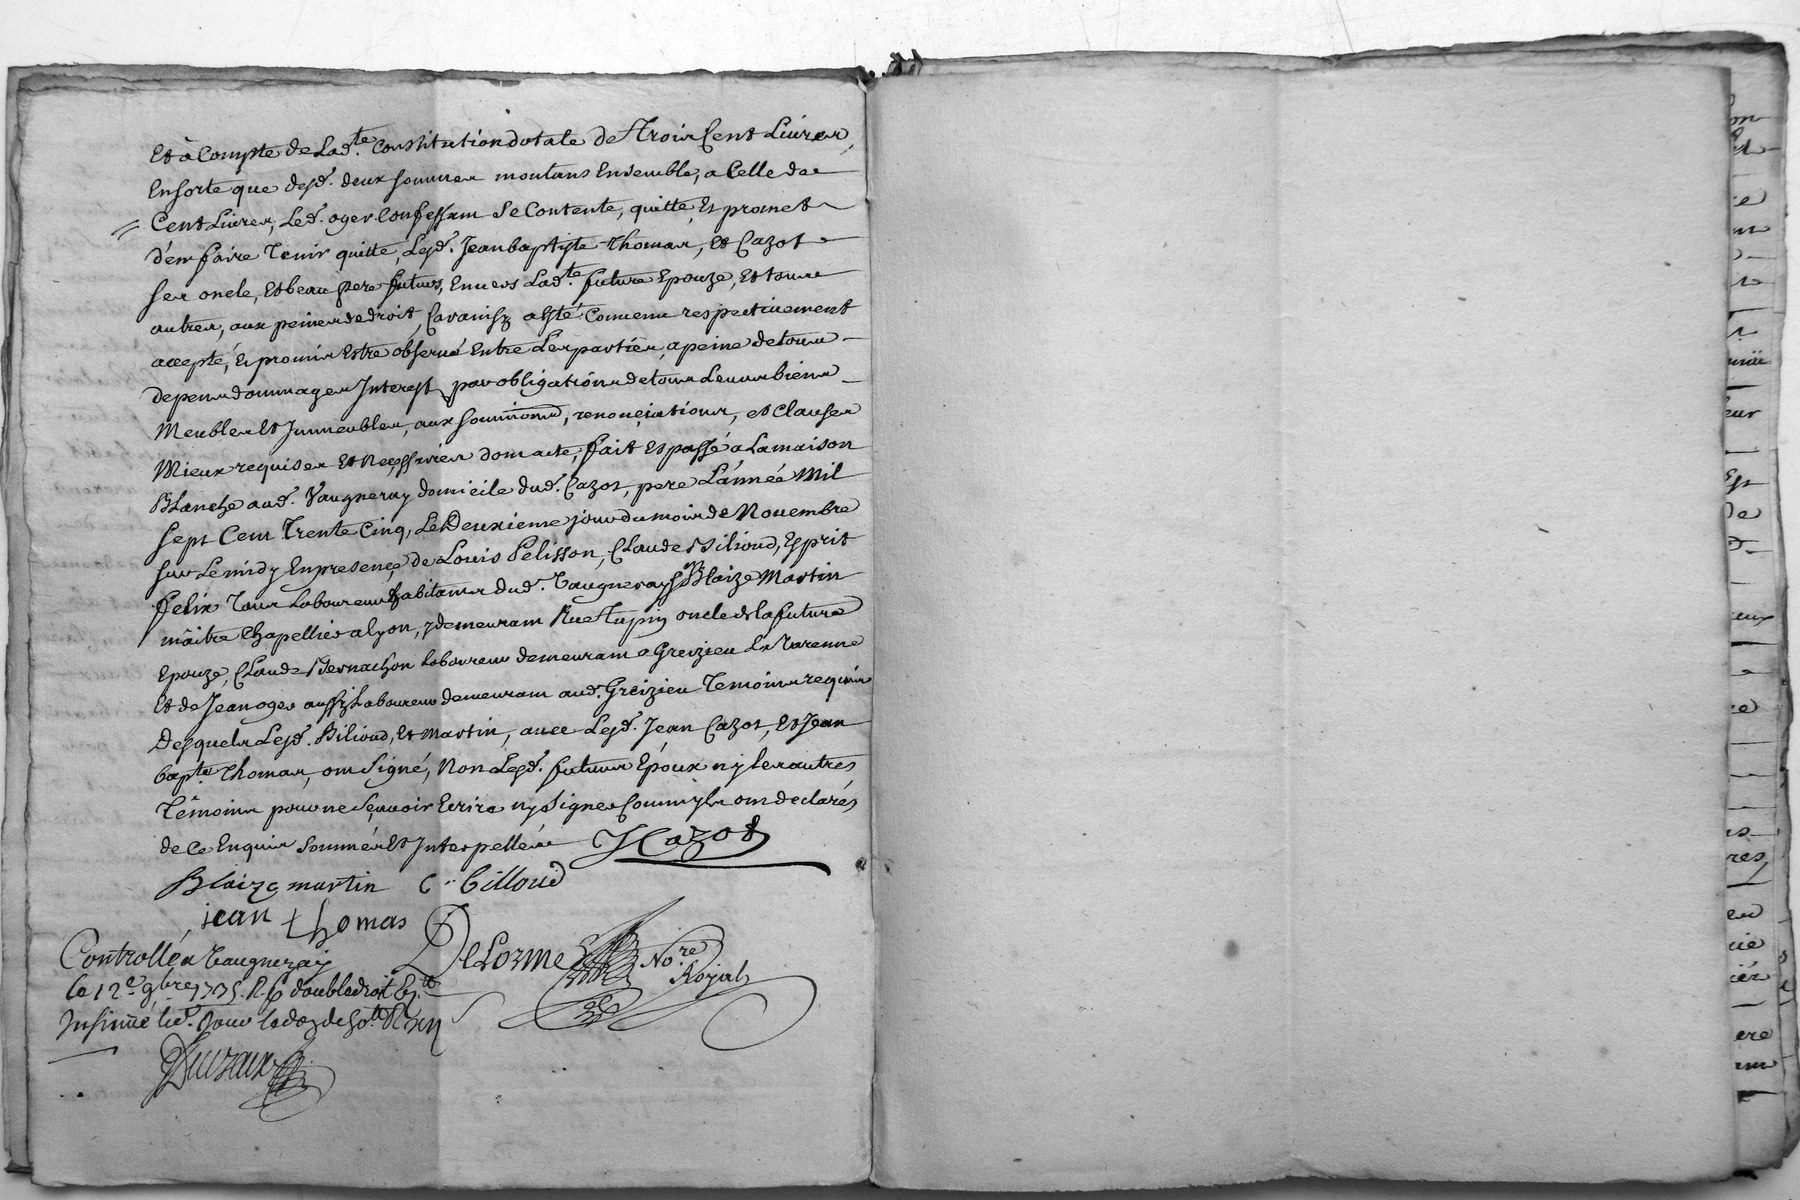 Et à Compte de Lad.te Constitution dotale de Trois Cent Livres,
Ensorte que desd. deux sommes montans Ensemble, a Celle de
Cent Livres, Led. oger Confessam Se Contente, quitte, Et promet
d'en faire Tenir quitte, Lesd. Jean baptiste Thomas, et Cazot
ses oncle, Et beau pere futurs, Envers Lad.te future Epouze, Et tous
autres, aux peines de droit, Car ainsy a Esté Convenu respectivement
accepté, Et promis Estre observé Entre Les parties, a peine de tous
depens dommages Interest, par obligations de tous Leurs biens
Meubles Et Immeubles, aux soumi͞ons, renonciations, et Clauses
Mieux requises Et Necessaires dom acte, fait Et passé a La maison
Blanche aud. Vaugneray domicile dud. Cazot, pere L'année Mil
sept Cem Trente Cinq, Le Deuxieme jour du mois de Novembre
sur Le midy En presence, de Louis Pelisson, Claude Bilioud, Esprit
felix Tous Laboureurs habitams dud. Vaugneray, Sr Blaize Martin
maitre Chapellier a lyon, y demeuram Rue Tupin oncle de la future
Epouze, Claude Bernachon Laboureur demeuram a Greizieu La Varenne
Et de Jean oger aussy Laboureur demeuram aud. Greizieu Temoins requis
Desquels Lesd. Bilioud, Et Martin, avec Lesd. Jean Cazot, Et Jean
bapte Thomas, om Signé, Non Lesd. futurs Epoux ny les autres
Témoins pour ne Sçavoir Ecrire ny Signer Comm'ils om declarés
de Ce Enquis Sommés Et Interpellés J Cazot
Blaize martin C. billoud
jean thomas
DeLorme No.re
Royal
Controllé a Vaugneray
le 12e 9bre 1735. R. 6 double droit
Insinué lied. Jour
Duvaux